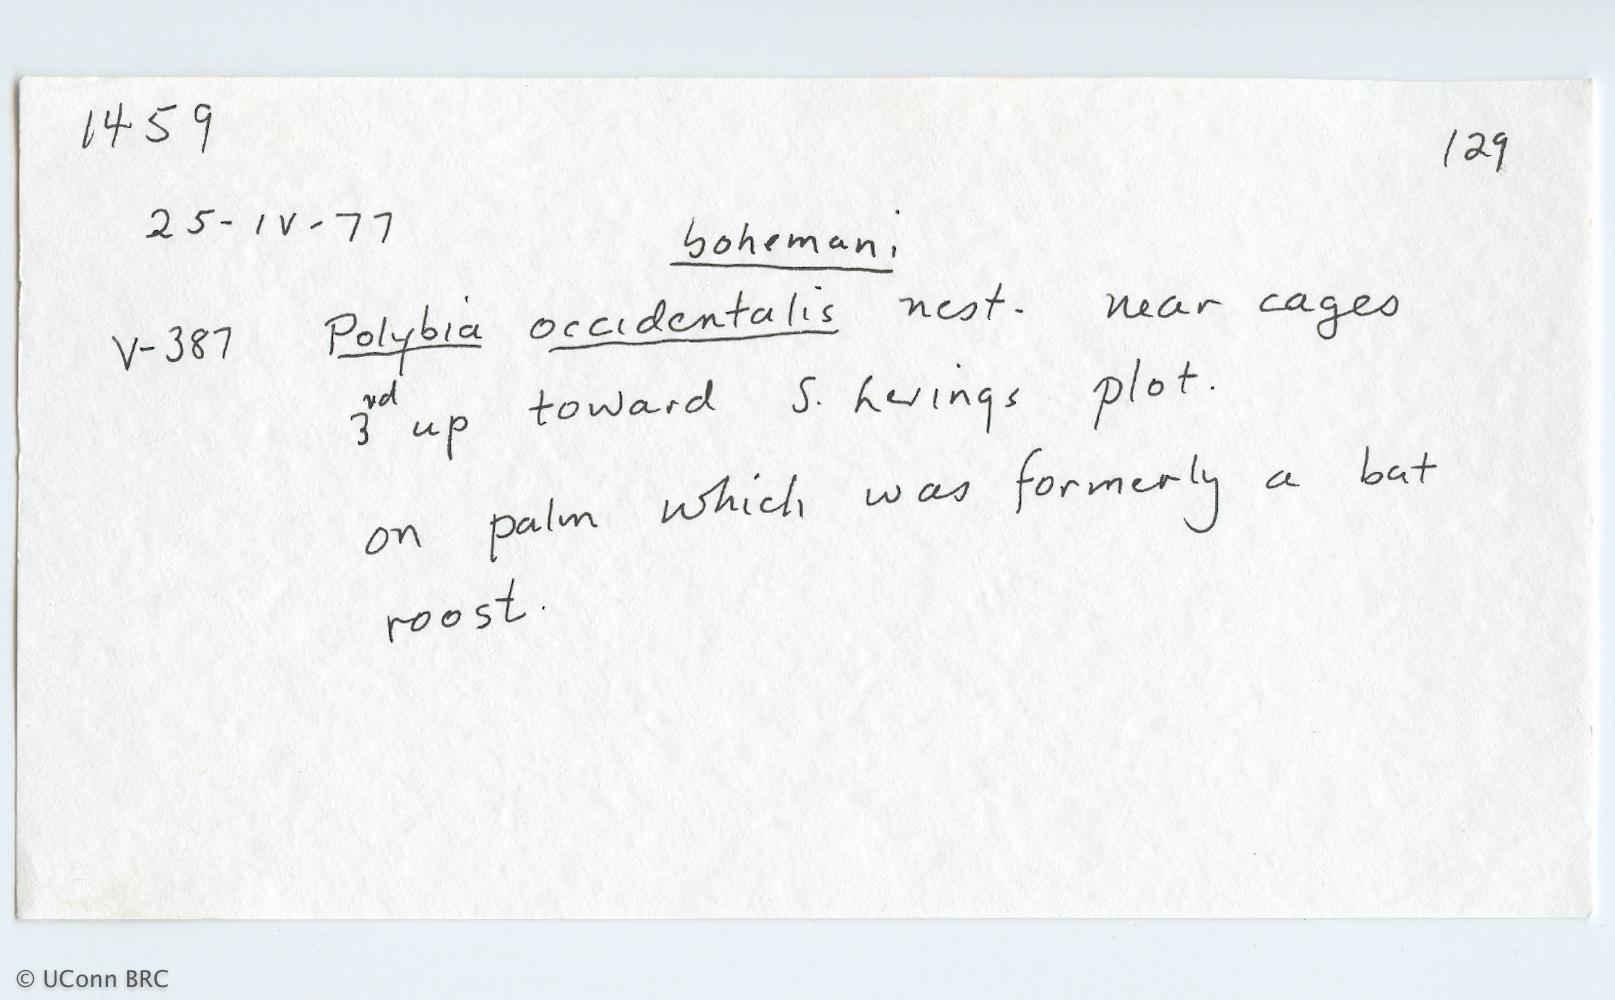 1459
129
25-IV-77
bohemani
V-387 Polybia occidentalis nest. near cages
3rd up toward S. Levings plot.
on palm which was formerly a bat
roost.
© UConn BRC